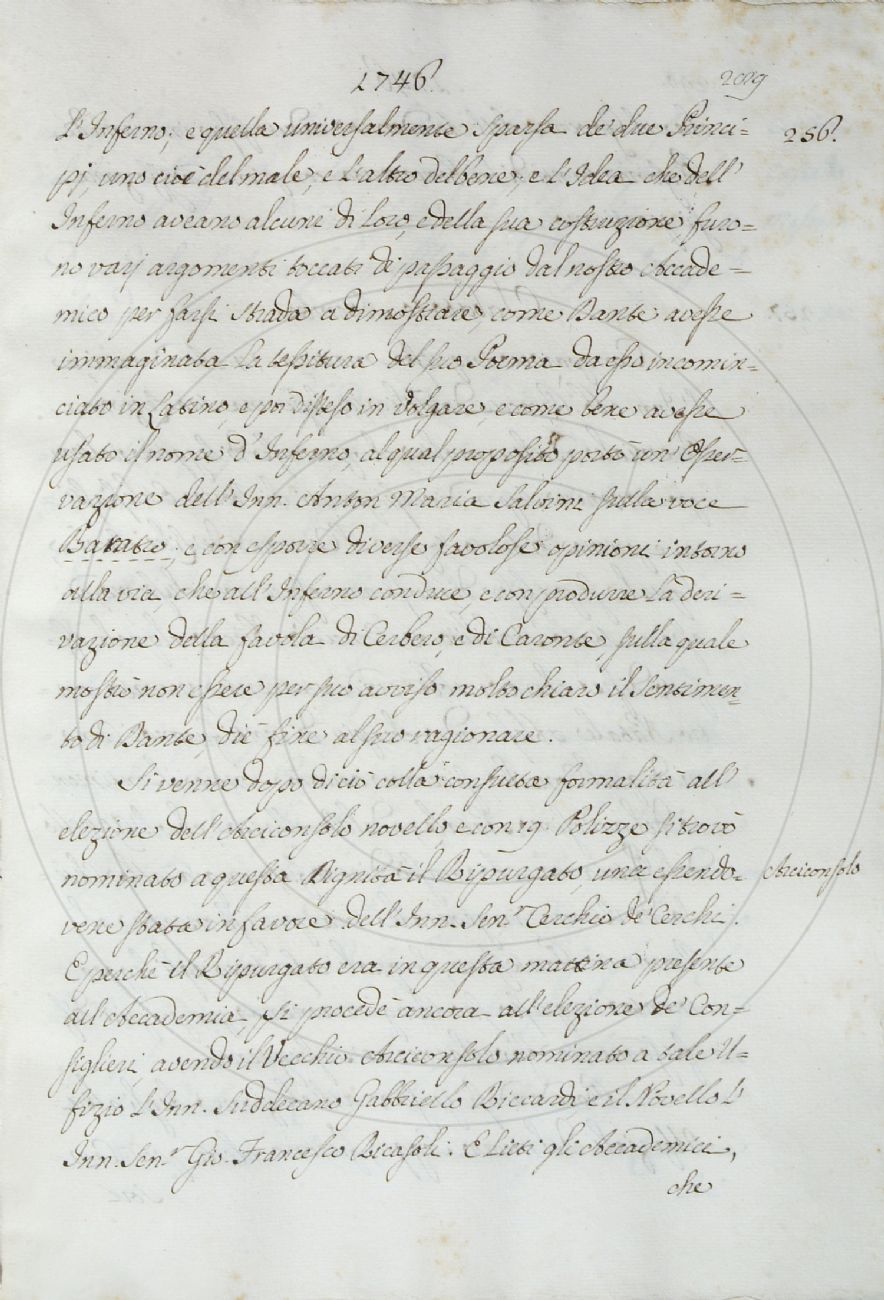 1746.
209
256.
L'Inferno; e quella universalmente sparsa de' due Princi=
pj, uno cioè del male, e l'altro del bene; e l'Idea che dell'
Inferno aveano alcuni di loro, e della sua costruzione furo=
no varj argomenti toccati di passaggio dal nostro Accade=
mico per farsi strada a dimostrare, come Dante avesse
immaginata la tessitura del suo Poema da esso incomin=
ciato in Latino, e poi disteso in volgare, e come bene avesse
usato il nome d'Inferno, al qual proposito portò un'Osser=
vazione dell'Inn. Anton Maria Salvini sulla voce
Baratro; e con esporre diverse favolose opinioni intorno
alla via, che all'Inferno conduce, e con produrre la deri=
vazione della favola di Cerbero, e di Caronte, sulla quale
mostrò non essere per suo avviso molto chiaro il sentimen=
to di Dante, diè fine al suo ragionare.
Si venne dopo di ciò colla consueta formalità all'
elezione dell'Arciconsolo novello, e con 19. Polizze si trovò
nominato a questa Dignità il Ripurgato, una essendo=
Arciconsolo
vene stata in favore dell'Inn. Sen.r Cerchio de' Cerchi.
E perchè il Ripurgato era in questa mattina presente
all'Accademia, si procedè ancora all'elezione de' Con=
siglieri, avendo il Vecchio Arciconsolo nominato a tale U=
fizio l'Inn. Suddecano Gabbriello Riccardi e il Novello l'
Inn. Sen.r Gio. Francesco Ricasoli. E lieti gli Accademici,
che